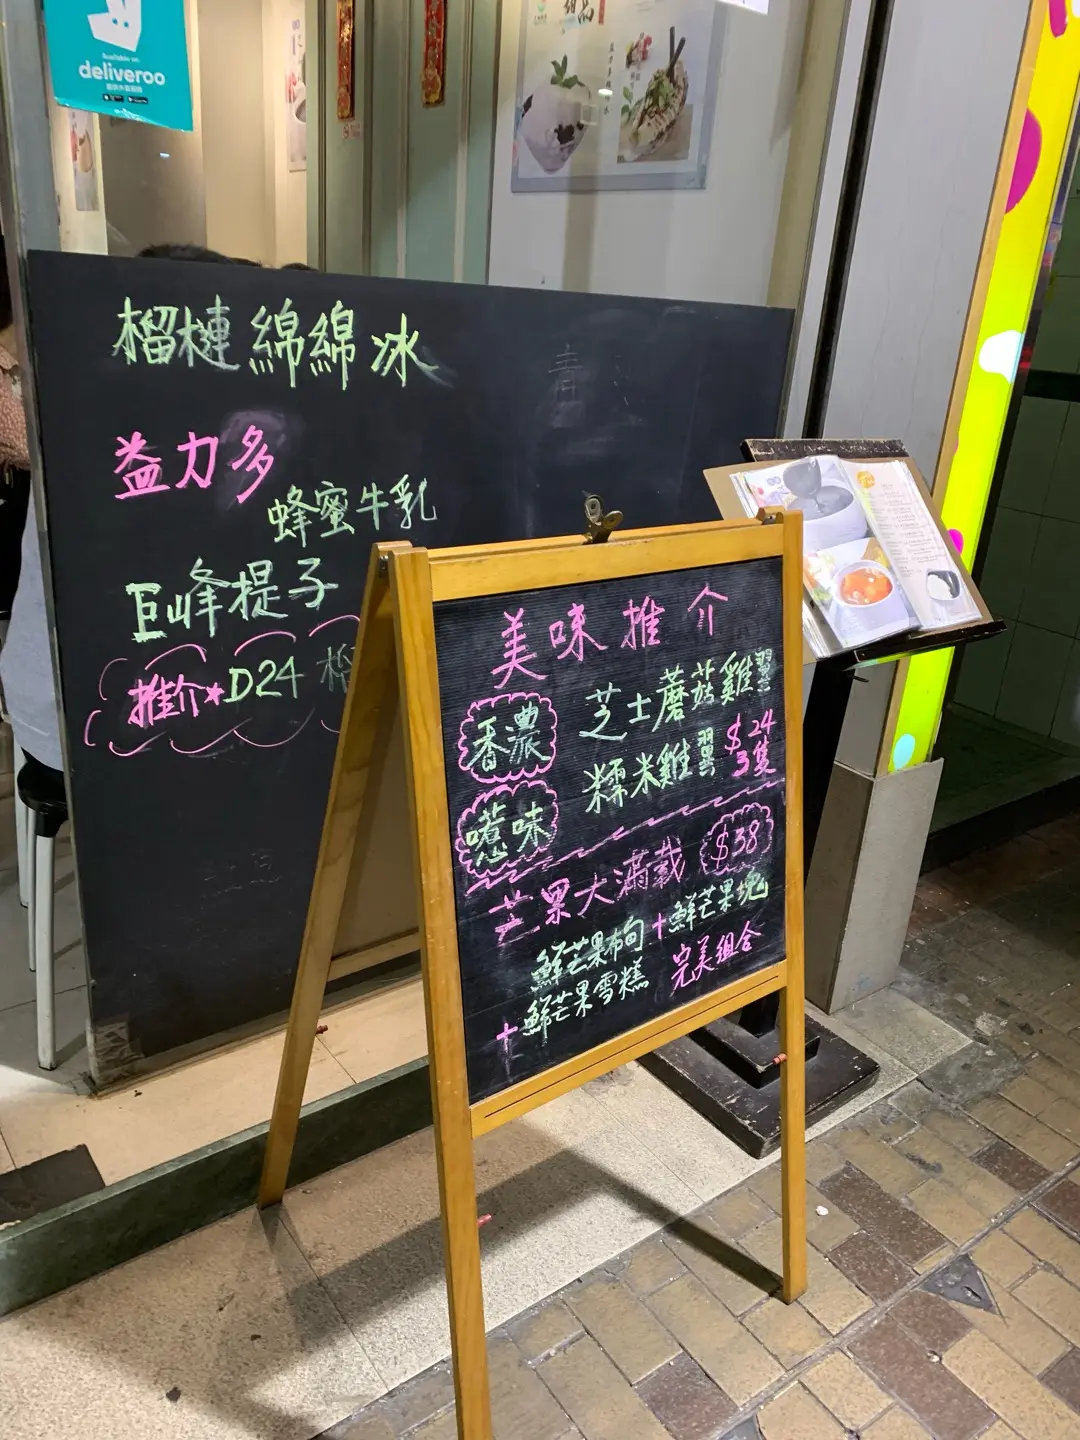 Available on
deliveroo
甜品
榴槤綿綿冰
青
益力多
蜂蜜牛乳
巨峰提子
推介★D24 榴
美味推介
香濃
芝士蘑菇雞翼
糯米雞翼
$24
3隻
惹味
芒果大滿載 $38
鮮芒果布甸+鮮芒果塊
+鮮芒果雪糕 完美組合